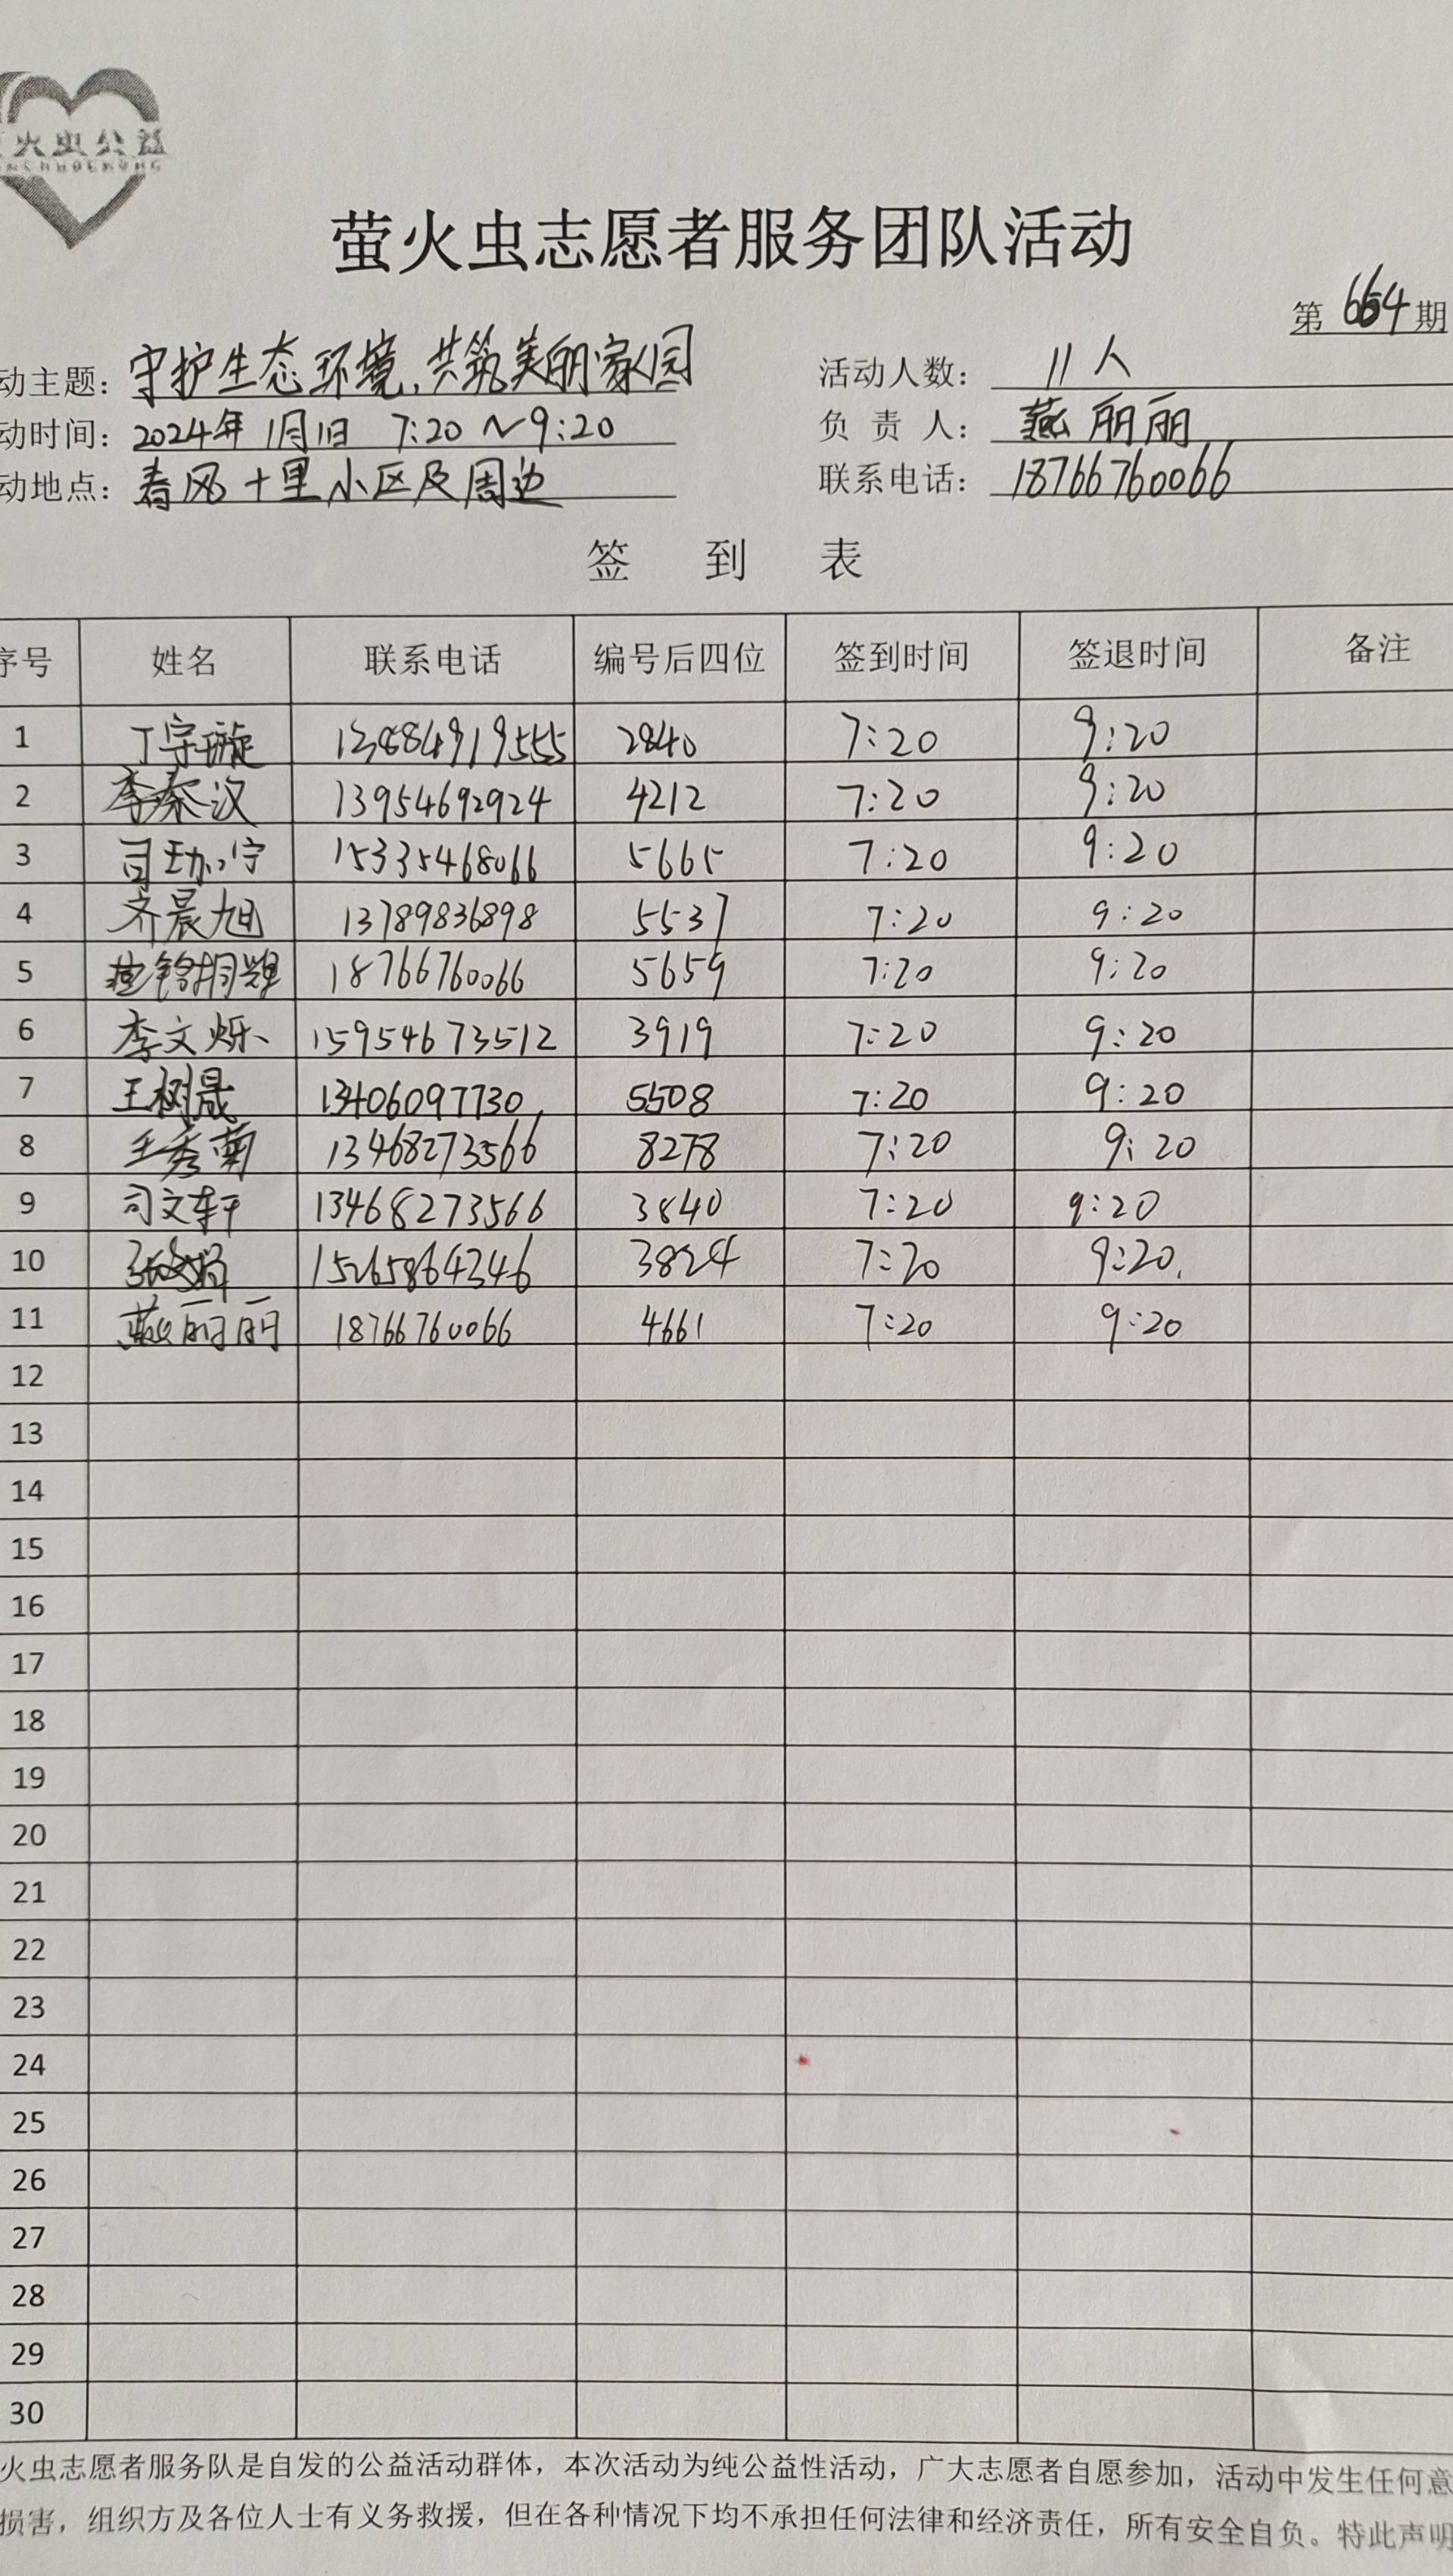 火虫公益
萤火虫志愿者服务团队活动
第 664 期
动主题: 守护生态环境,共筑美丽家园 活动人数: 11人
动时间: 2024年1月1日 7:20~9:20 负责人: 燕丽丽
动地点: 春风十里小区及周边 联系电话: 18766760066
签到表
序号 姓名 联系电话 编号后四位 签到时间 签退时间 备注
1 丁宇璇 2840 7:20 9:20
2 李秦汉 13954692924 4212 7:20 9:20
3 15335468066 5665 7:20 9:20
4 齐晨旭 13789836898 5537 7:20 9:20
5 18766760066 5659 7:20 9:20
6 李文烁 15954673512 3919 7:20 9:20
7 王树晟 13406097730 5508 7:20 9:20
8 王秀菊 13468273566 8278 7:20 9:20
9 司文轩 13468273566 3840 7:20 9:20
10 15265864346 3824 7:20 9:20
11 燕丽丽 18766760066 4661 7:20 9:20
12
13
14
15
16
17
18
19
20
21
22
23
24
25
26
27
28
29
30
火虫志愿者服务队是自发的公益活动群体，本次活动为纯公益性活动，广大志愿者自愿参加，活动中发生任何意
损害，组织方及各位人士有义务救援，但在各种情况下均不承担任何法律和经济责任，所有安全自负。特此声明